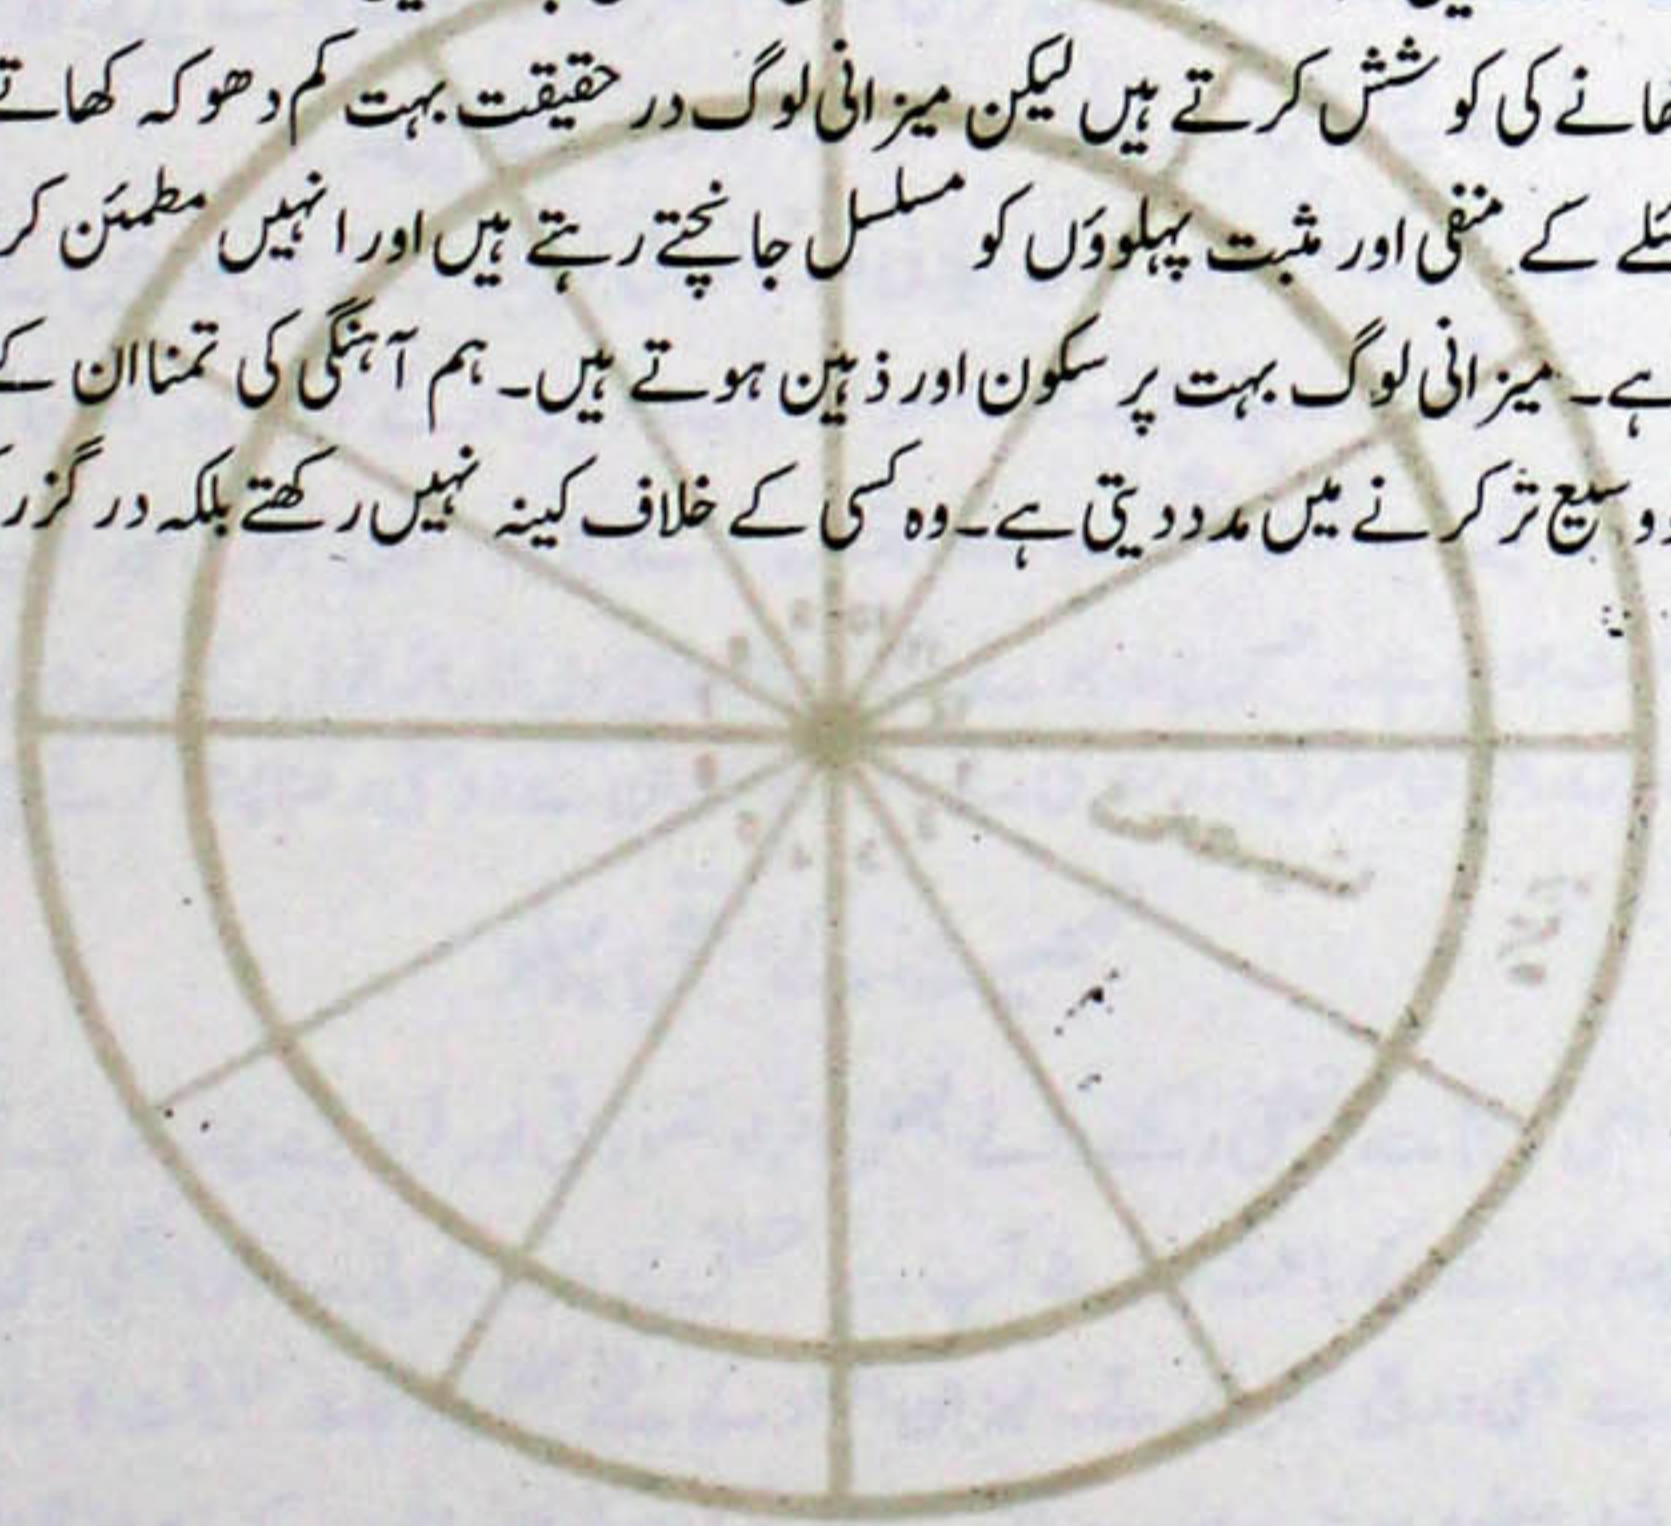 کی کوشش کرتے ہیں لیکن میزانی لوگ در حقیقت بہت کم دھوکہ کھاتے
کے منفی اور مثبت پہلووَں کو مسلسل جانچتے رہتے ہیں اور انہیں مطمئن کر
ہے۔ میزانی لوگ بہت پر سکون اور ذہین ہوتے ہیں۔ ہم آہنگی کی تمنا ان کے
وسیع تر کرنے میں مدد دیتی ہے۔ وہ کسی کے خلاف کینہ نہیں رکھتے بلکہ در گزر